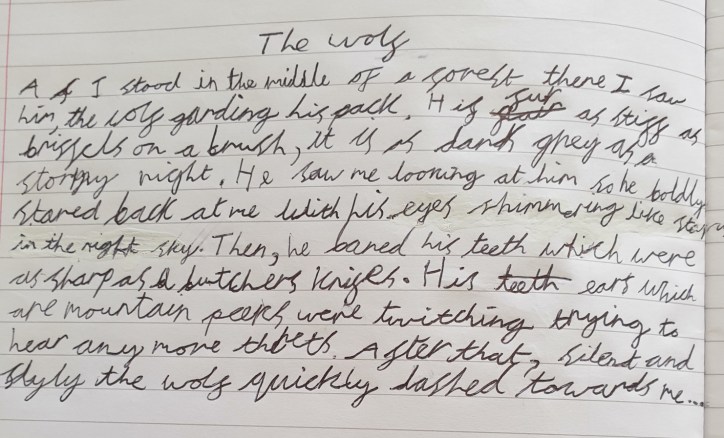 The wolf
As I stood in the middle of a forest there I saw
him, the wolf garding his pack. His fur as stiff as
brissels on a brush, it is as dark grey as a
stormy night. He saw me looking at him so he boldly
stared back at me with his eyes shimmering like stars
in the night sky. Then, he bared his teeth which were
as sharp as a butchers knifes. His teeth ears which
are mountain peeks were twitching trying to
hear any more threts. After that, silent and
slyly the wolf quickly dashed towards me...